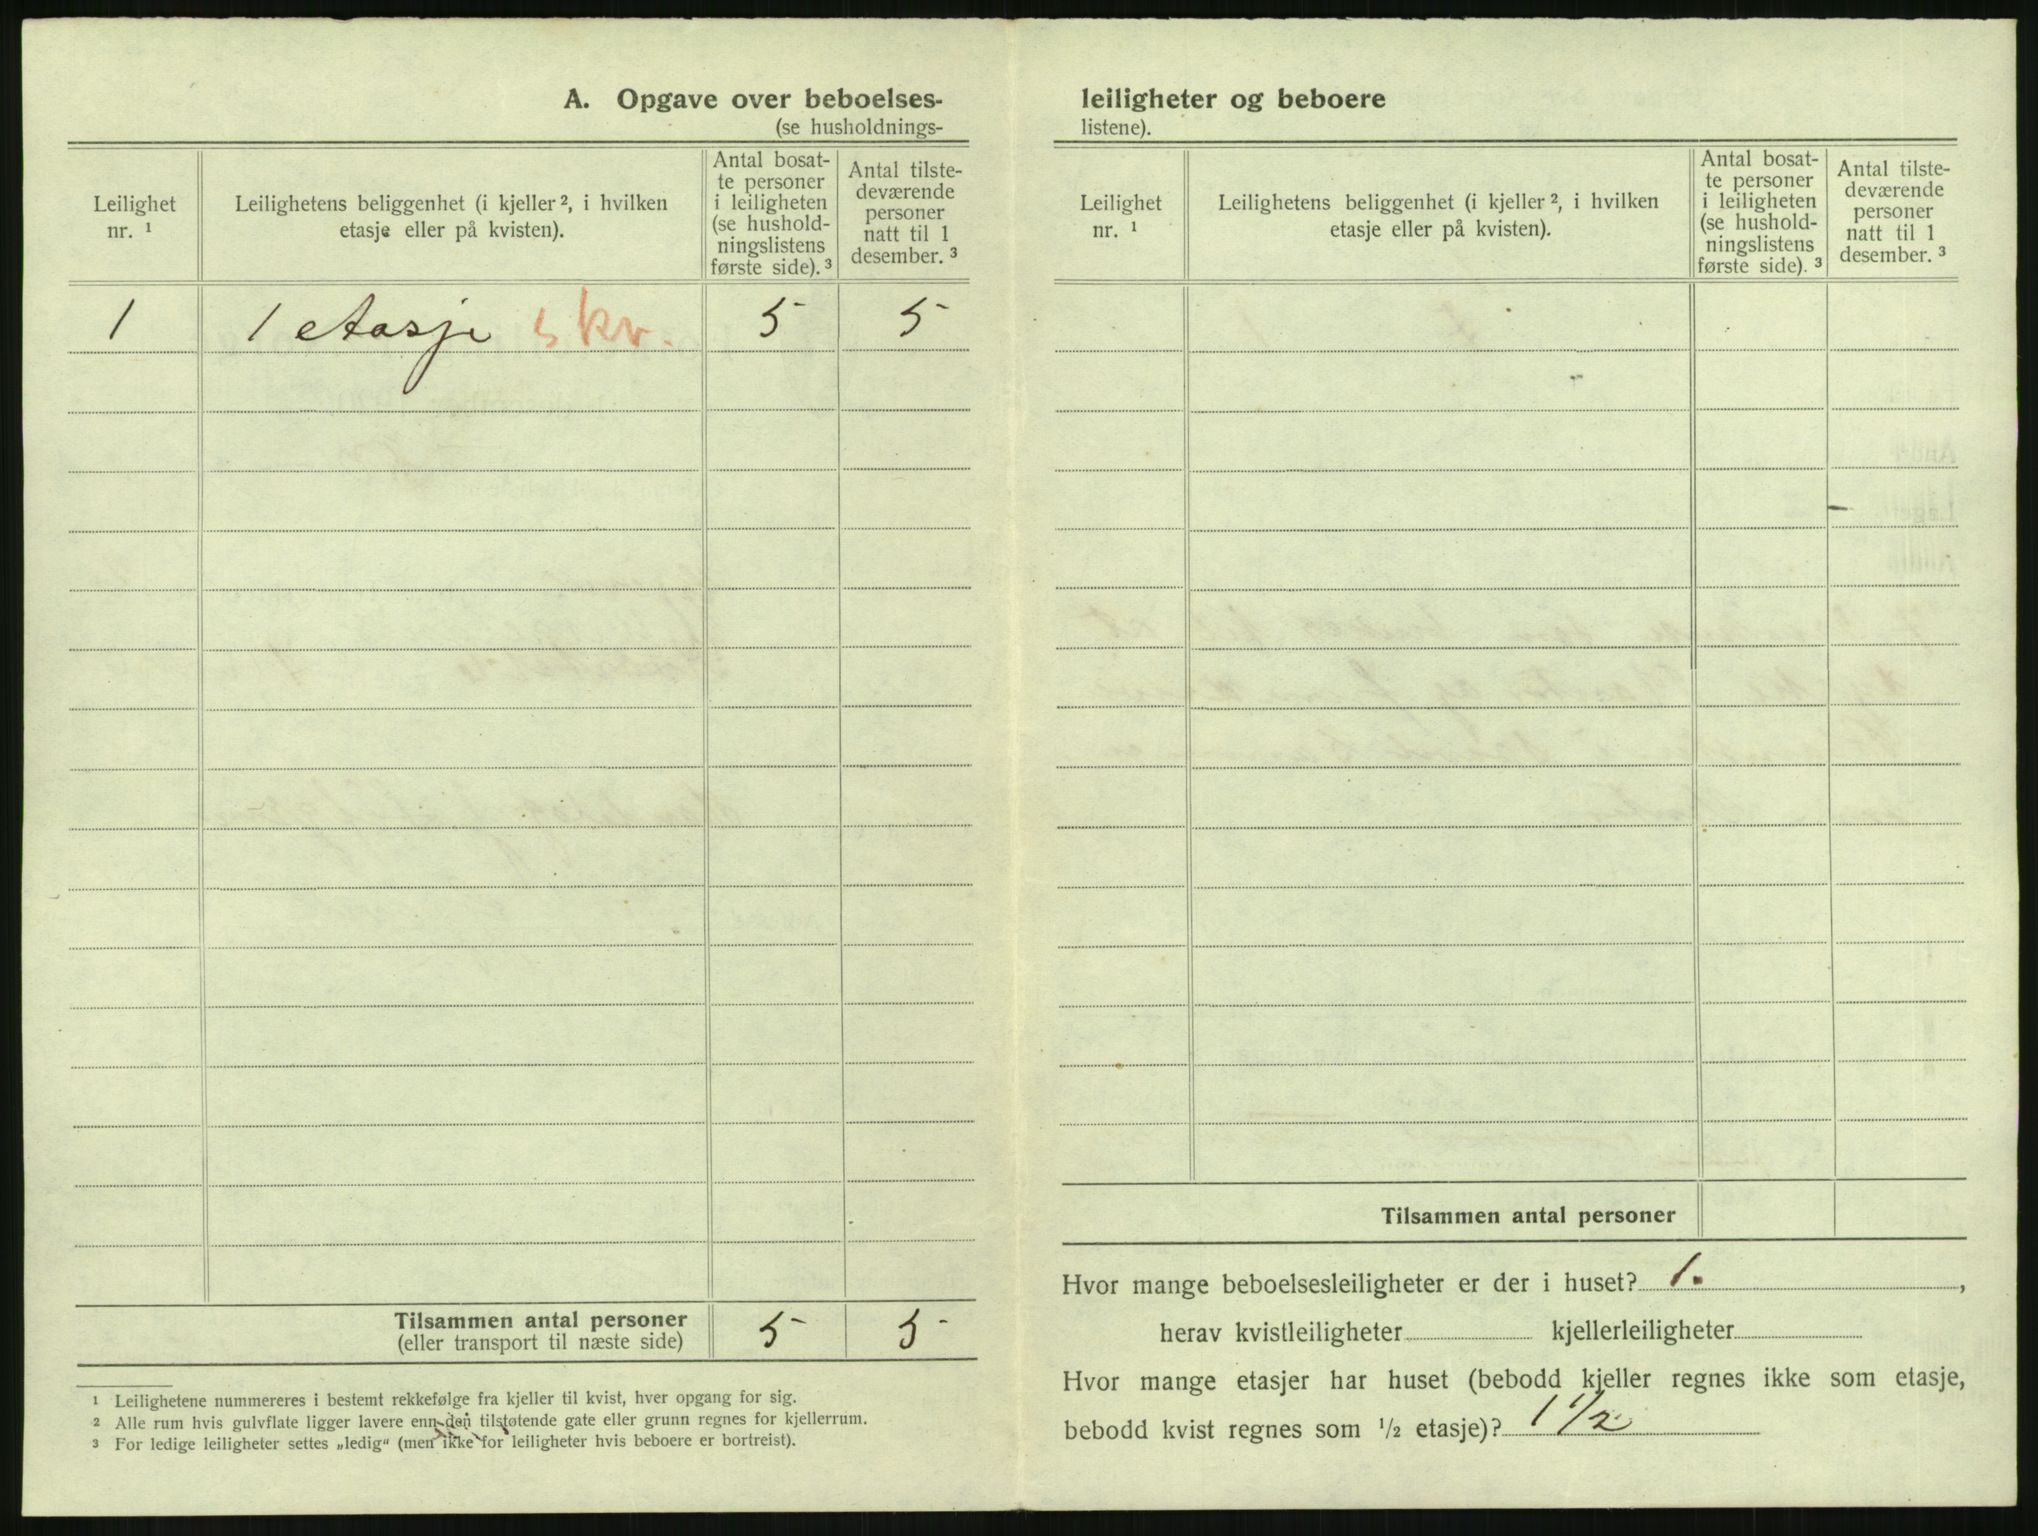 A. Opgave over beboelses-
(se husholdnings-
Leilighet
nr. ¹
Leilighetens beliggenhet (i kjeller ², i hvilken
etasje eller på kvisten).
Antal bosat-
te personer
i leiligheten
(se hushold-
ningslistens
første side). ³
Antal tilste-
deværende
personer
natt til 1
desember. ³
1 1 etasje 5 kv. 5 5
Tilsammen antal personer 5 5
(eller transport til næste side)
¹ Leilighetene nummereres i bestemt rekkefølge fra kjeller til kvist, hver opgang for sig.
² Alle rum hvis gulvflate ligger lavere enn den tilstøtende gate eller grunn regnes for kjellerrum.
³ For ledige leiligheter settes „ledig“ (men ikke for leiligheter hvis beboere er bortreist).
leiligheter og beboere
listene).
Leilighet
nr. ¹
Leilighetens beliggenhet (i kjeller ², i hvilken
etasje eller på kvisten).
Antal bosat-
te personer
i leiligheten
(se hushold-
ningslistens
første side). ³
Antal tilste-
deværende
personer
natt til 1
desember. ³
Tilsammen antal personer
Hvor mange beboelsesleiligheter er der i huset? 1. ,
herav kvistleiligheter kjellerleiligheter
Hvor mange etasjer har huset (bebodd kjeller regnes ikke som etasje,
bebodd kvist regnes som ½ etasje)? 1 1/2